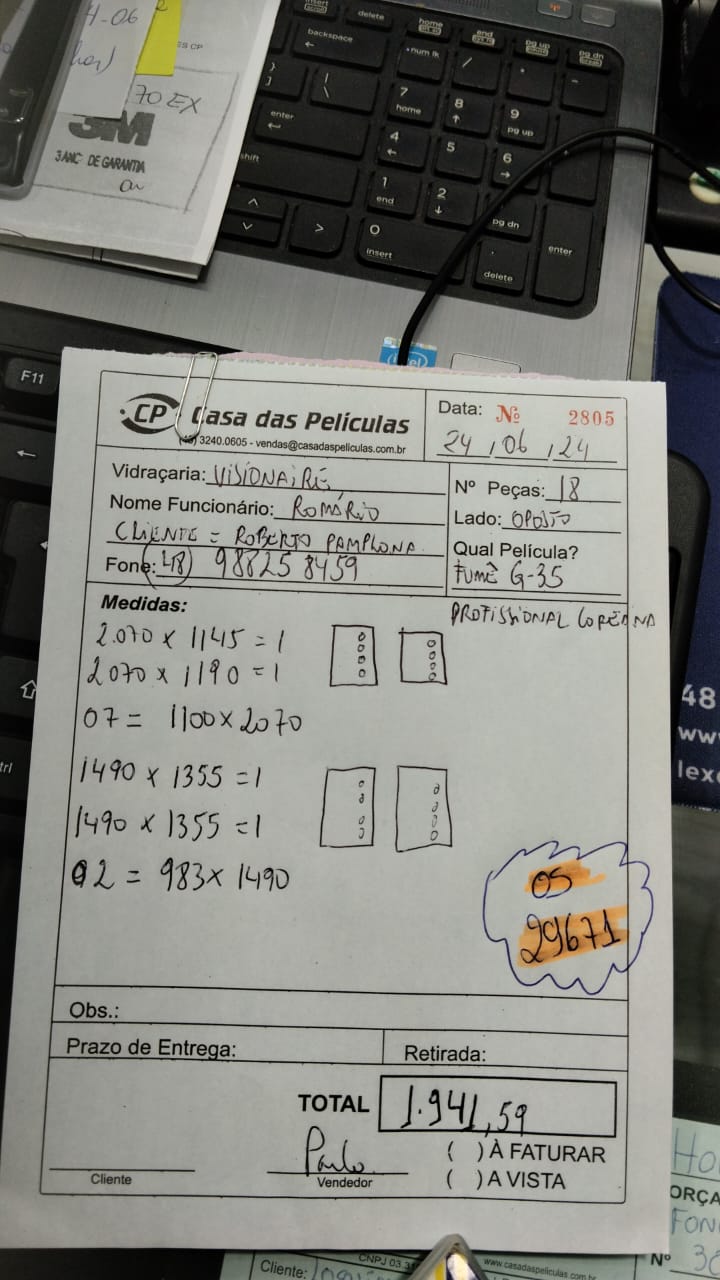 4-06
70 EX
3M
3 ANOS DE GARANTIA
insert
delete
home
end
pg up
pg dn
backspace
num lk
enter
shift
7
home
8
9
pg up
4
5
6
1
end
2
pg dn
0
insert
delete
enter
intel
F11
CP Casa das Películas
3240.0605 - vendas@casadaspeliculas.com.br
Data: Nº 2805
24 / 06 / 24
Vidraçaria: VISIONAIRE
Nome Funcionário: ROMÁRIO
CLIENTE = ROBERTO PAMPLONA
Fone: (48) 98825 8459
Nº Peças: 18
Lado: OPOSTO
Qual Película?
FUMÊ G-35
PROFISSIONAL COREANA
Medidas:
2.070 x 1145 = 1
2070 x 1190 = 1
07 = 1100 x 2070
1490 x 1355 = 1
1490 x 1355 = 1
02 = 983 x 1490
OS
29671
Obs.:
Prazo de Entrega:
Retirada:
TOTAL 1.941,59
( ) À FATURAR
( ) A VISTA
Paulo
Cliente
Vendedor
48
www
lex
ORÇA
FON
Nº 30
CNPJ 03.3
www.casadaspeliculas.com
Cliente: